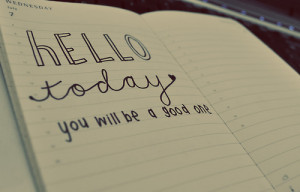 WEDNESDAY
7
HELLO
today
you will be a good one